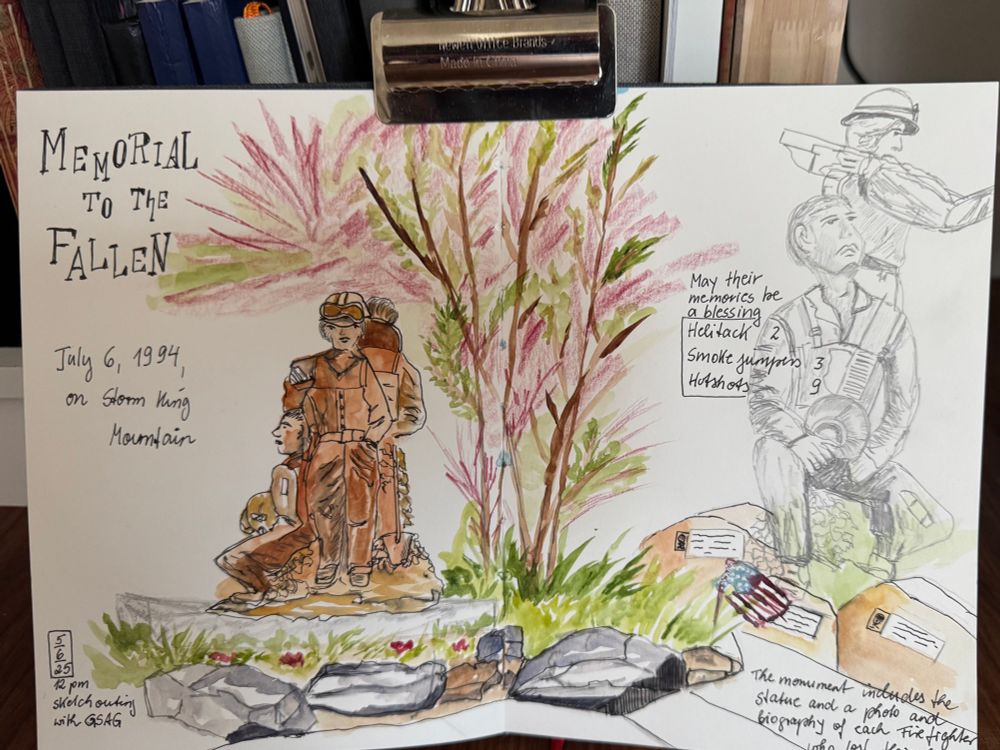 Newell Office Brands
Made in China
MEMORIAL
TO THE
FALLEN
July 6, 1994,
on Storm King
Mountain
May their
memories be
a blessing
Helitack 2
Smoke jumpers 3
Hotshots 9
5
6
25
12 pm
sketch outing
with GSAG
The monument includes the
statue and a photo and
biography of each Firefighter
who lost